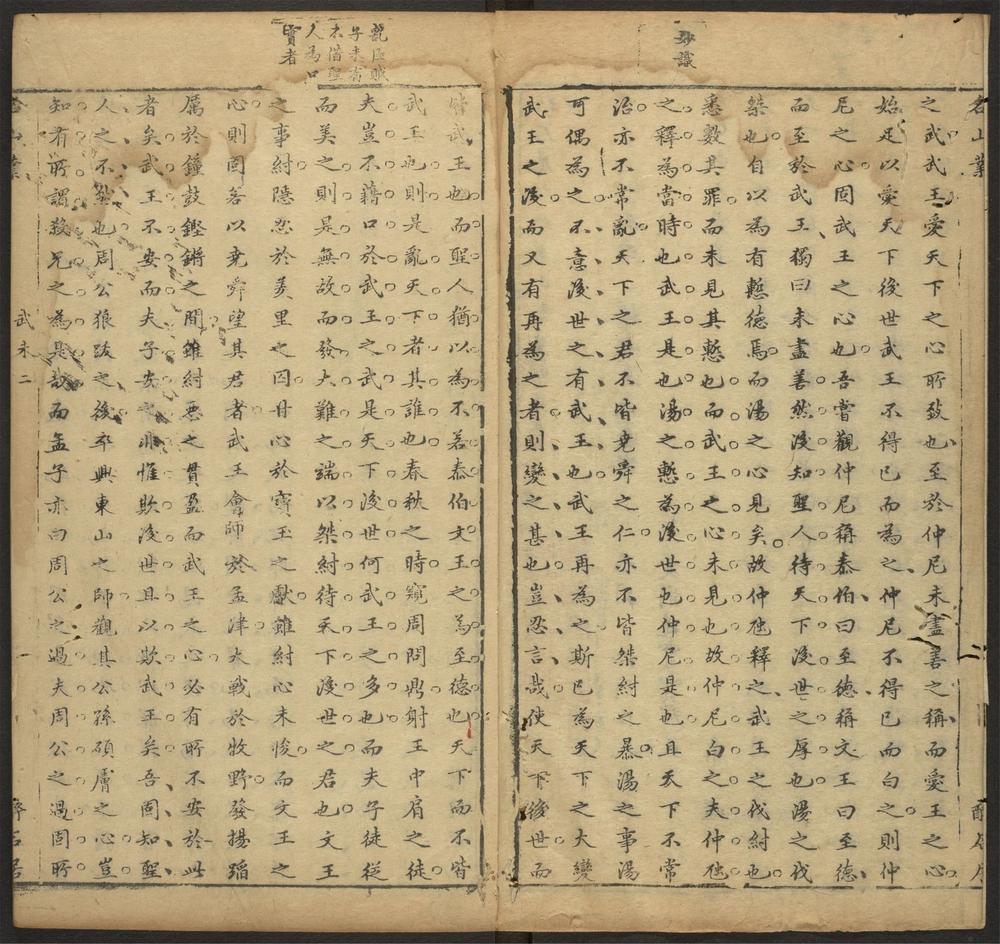 妙識
之武武王愛天下之心所致也至於仲尼未盡善之稱而愛王之心
始足以愛天下後世武王不得已而為之仲尼不得已而白之則仲
尼之心固武王之心也吾嘗觀仲尼稱泰伯曰至德稱文王曰至德
而至於武王獨曰未盡善然後知聖人待天下後世之厚也湯之伐
桀也自以為有慙德焉而湯之心見矣故仲虺釋之武王之伐紂也
悉數其罪而未見其慙也而武王之心未見也故仲尼白之夫仲虺
之釋為當時也武王是也湯之慙為後世也仲尼是也且天下不常
治亦不常亂天下之君不皆堯舜之仁亦不皆桀紂之暴湯之事湯
可偶為之不意後世之有武王也武王再為之斯已為天下之大變
武王之後而又有再為之者則變之甚也豈忍言哉使天下後世而
皆武王也而聖人猶以為不若泰伯文王之為至德也天下而不皆
武王也則是亂天下者其誰也春秋之時窺周問鼎射王中肩之徒
夫豈不藉口於武王之武是天下後世何武王之多也而夫子徒從
而美之則是無故而發大難之端以桀紂待天下後世之君也文王
之事紂隱忍於羑里之囚甘心於寶玉之獻雖紂心未悛而文王之
心則固若以堯舜望其君者武王會師於孟津大戰於牧野發揚蹈
厲於鐘鼓鏗鏘之間雖紂惡之貫盈而武王之心必有所不安於此
者矣武王不安而夫子安之非惟欺後世且以欺武王矣吾固知聖
人之不然也周公狼跋之後卒興東山之師觀其公孫碩膚之心豈
知有所謂殺兄之為是哉而孟子亦曰周公之過夫周公之過固所
武未 二
亂臣賊
子未有
不借聖
人為口
實者